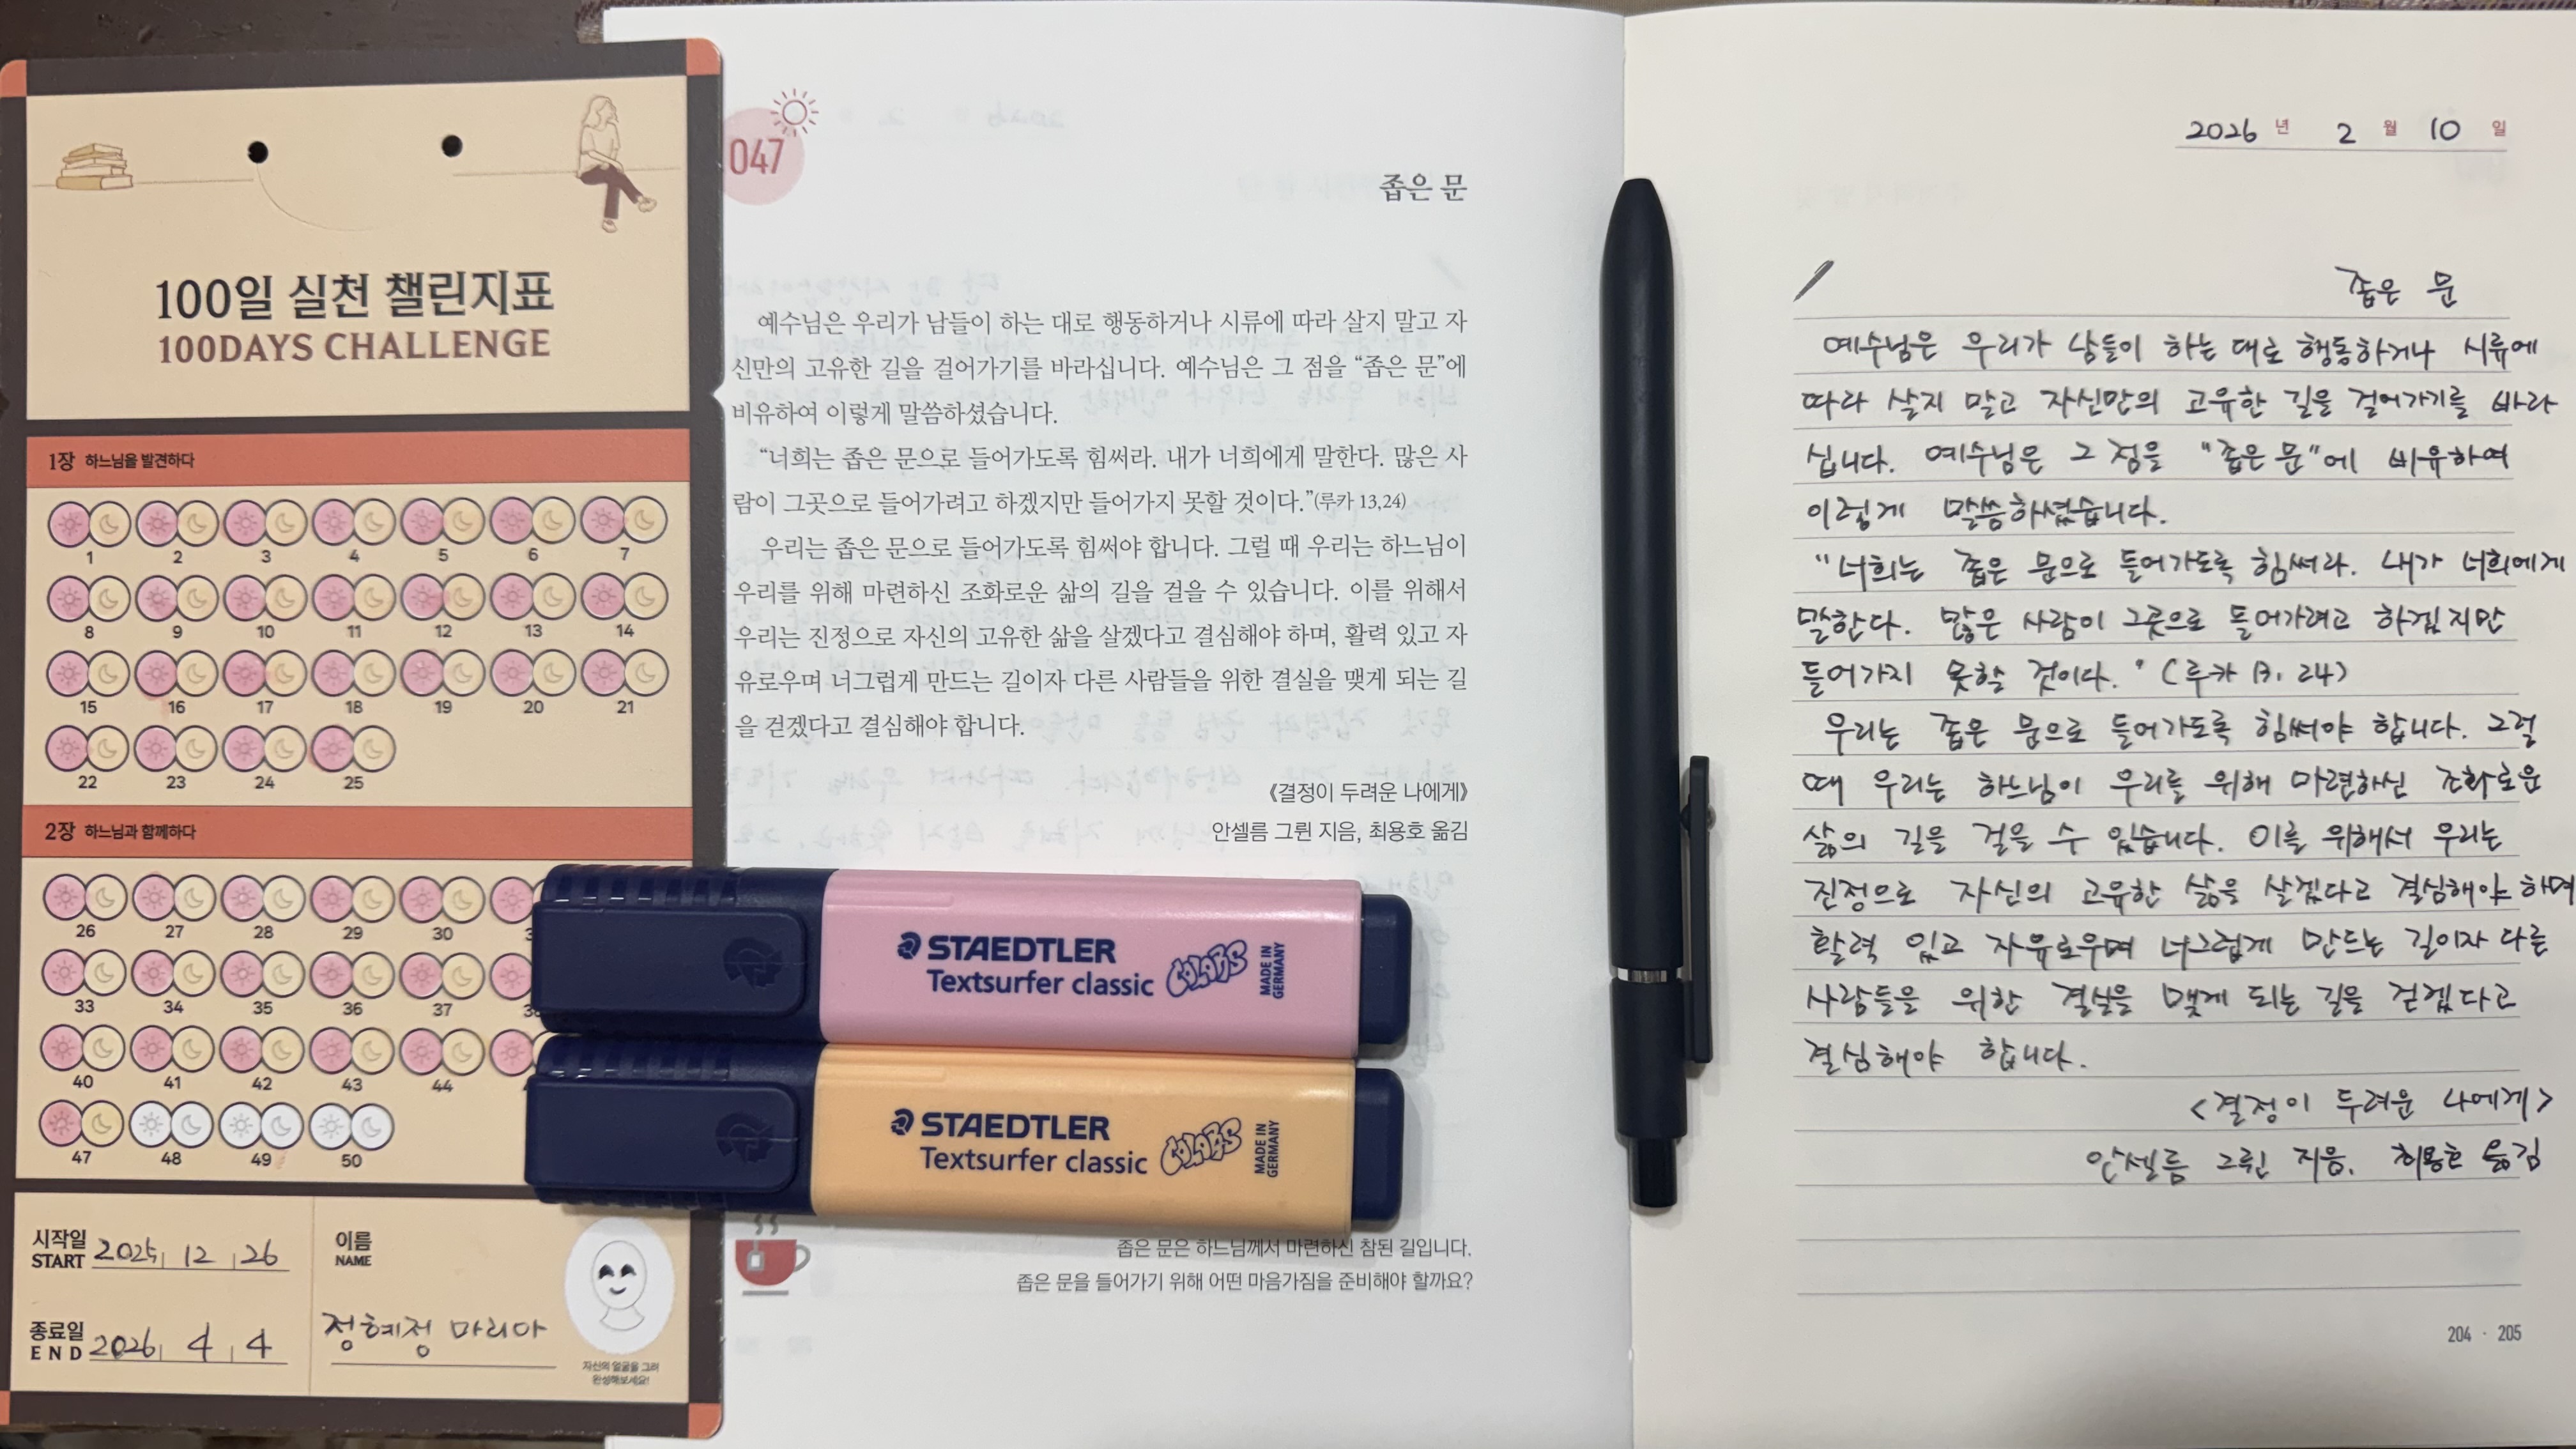 100일 실천 챌린지표
100DAYS CHALLENGE
1장 하느님을 발견하다
1 2 3 4 5 6 7
8 9 10 11 12 13 14
15 16 17 18 19 20 21
22 23 24 25
2장 하느님과 함께하다
26 27 28 29 30
33 34 35 36 37
40 41 42 43 44
47 48 49 50
시작일
START 2025 12 26
종료일
END 2026 4 4
이름
NAME
정혜정 마리아
자신의 얼굴을 그려
완성해보세요!
047
좁은 문
예수님은 우리가 남들이 하는 대로 행동하거나 시류에 따라 살지 말고 자
신만의 고유한 길을 걸어가기를 바라십니다. 예수님은 그 점을 “좁은 문”에
비유하여 이렇게 말씀하셨습니다.
“너희는 좁은 문으로 들어가도록 힘써라. 내가 너희에게 말한다. 많은 사
람이 그곳으로 들어가려고 하겠지만 들어가지 못할 것이다.”(루카 13,24)
우리는 좁은 문으로 들어가도록 힘써야 합니다. 그럴 때 우리는 하느님이
우리를 위해 마련하신 조화로운 삶의 길을 걸을 수 있습니다. 이를 위해서
우리는 진정으로 자신의 고유한 삶을 살겠다고 결심해야 하며, 활력 있고 자
유로우며 너그럽게 만드는 길이자 다른 사람들을 위한 결실을 맺게 되는 길
을 걷겠다고 결심해야 합니다.
《결정이 두려운 나에게》
안셀름 그륀 지음, 최용호 옮김
STAEDTLER
Textsurfer classic
COLORS
MADE IN
GERMANY
STAEDTLER
Textsurfer classic
COLORS
MADE IN
GERMANY
좁은 문은 하느님께서 마련하신 참된 길입니다.
좁은 문을 들어가기 위해 어떤 마음가짐을 준비해야 할까요?
2026 년 2 월 10 일
좁은 문
예수님은 우리가 남들이 하는 대로 행동하거나 시류에
따라 살지 말고 자신만의 고유한 길을 걸어가기를 바라
십니다. 예수님은 그 점을 "좁은 문"에 비유하여
이렇게 말씀하셨습니다.
"너희는 좁은 문으로 들어가도록 힘써라. 내가 너희에게
말한다. 많은 사람이 그곳으로 들어가려고 하겠지만
들어가지 못할 것이다." (루카 13, 24)
우리는 좁은 문으로 들어가도록 힘써야 합니다. 그럴
때 우리는 하느님이 우리를 위해 마련하신 조화로운
삶의 길을 걸을 수 있습니다. 이를 위해서 우리는
진정으로 자신의 고유한 삶을 살겠다고 결심해야 하며
활력 있고 자유로우며 너그럽게 만드는 길이자 다른
사람들을 위한 결실을 맺게 되는 길을 걷겠다고
결심해야 합니다.
<결정이 두려운 나에게>
안셀름 그륀 지음. 최용호 옮김
204 · 205